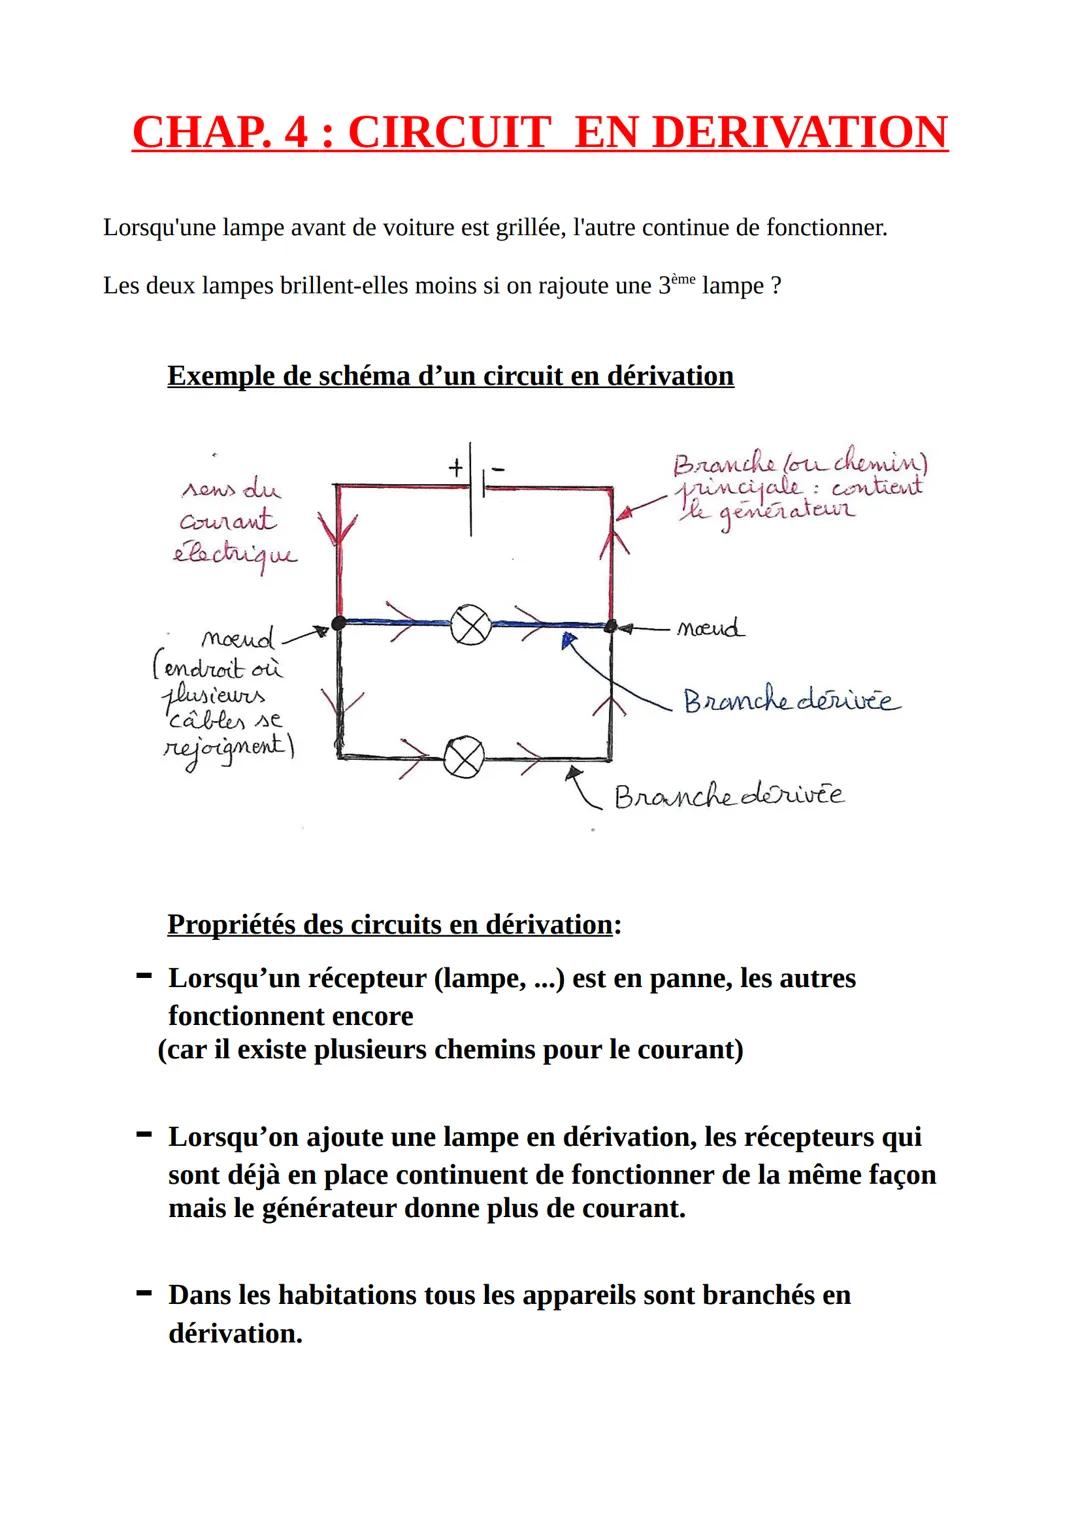 CHAP. 4 : CIRCUIT EN DERIVATION
Lorsqu'une lampe avant de voiture est grillée, l'autre continue de fonctionner.
Les deux lampes brillent-elles moins si on rajoute une 3ème lampe ?
Exemple de schéma d’un circuit en dérivation
+ -
sens du
courant
électrique
Branche (ou chemin)
principale : contient
le générateur
noeud
(endroit où
plusieurs
câbles se
rejoignent)
noeud
Branche dérivée
Branche dérivée
Propriétés des circuits en dérivation:
- Lorsqu’un récepteur (lampe, ...) est en panne, les autres
fonctionnent encore
(car il existe plusieurs chemins pour le courant)
- Lorsqu’on ajoute une lampe en dérivation, les récepteurs qui
sont déjà en place continuent de fonctionner de la même façon
mais le générateur donne plus de courant.
- Dans les habitations tous les appareils sont branchés en
dérivation.